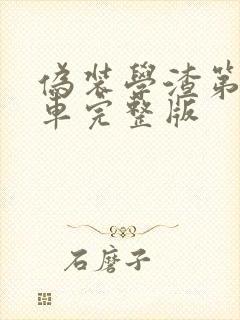 偽装學渣第
車完整版
石磨子